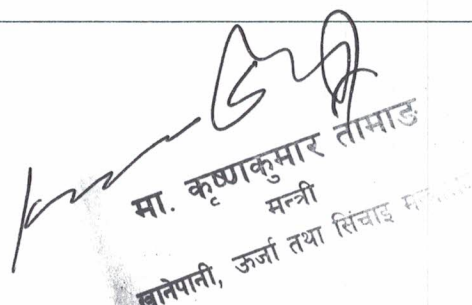 मा. कृष्णकुमार तामाङ
मन्त्री
खानेपानी, ऊर्जा तथा सिंचाइ